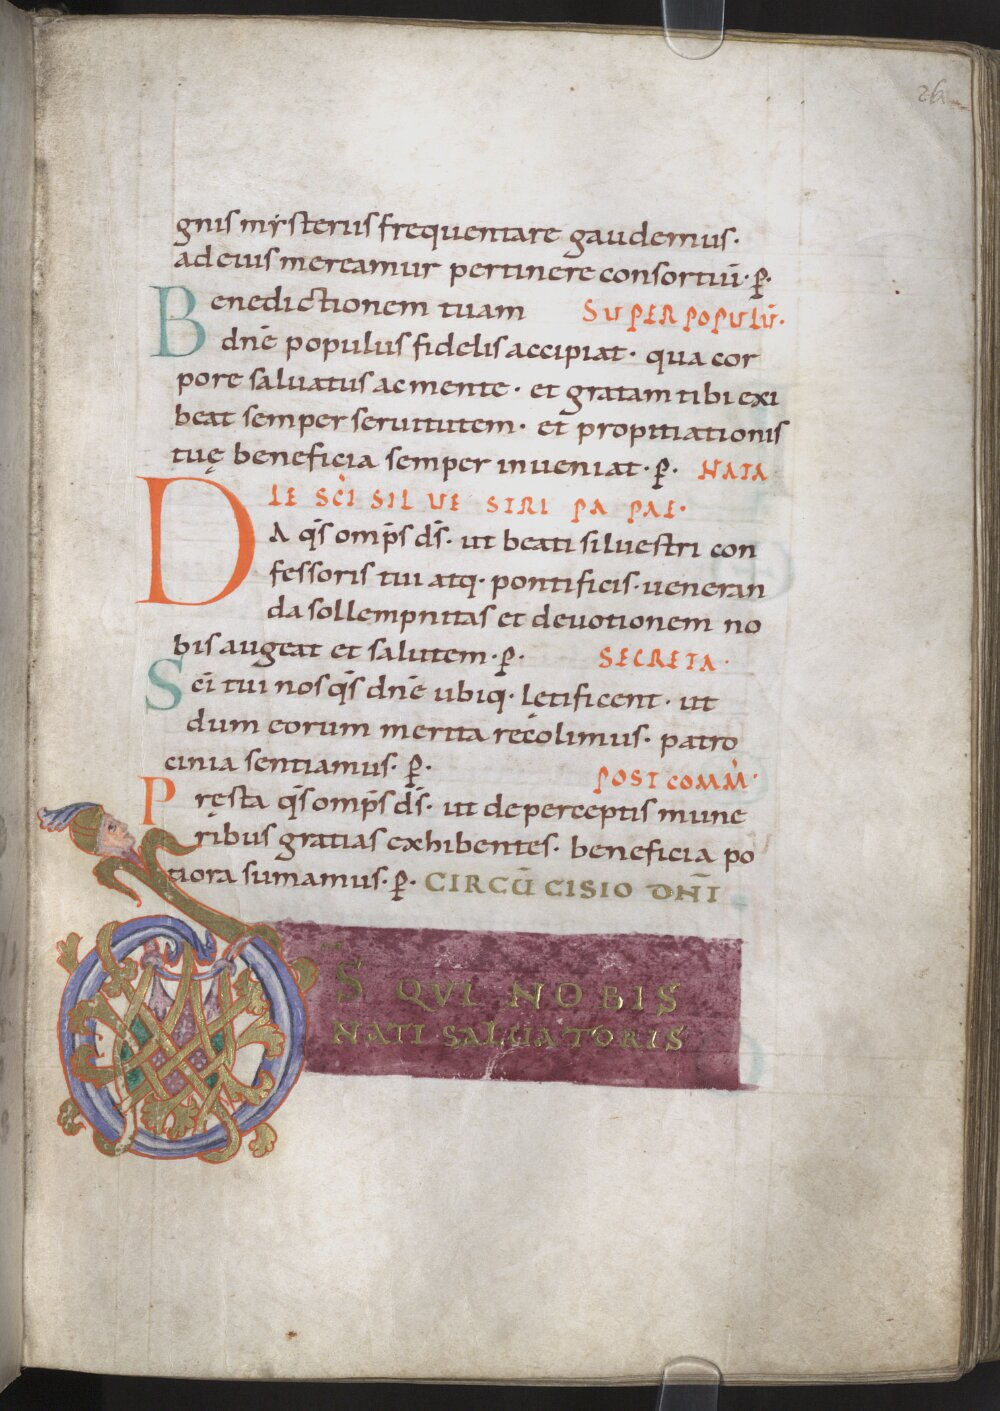 26
gnis mysteriis frequentare gaudemus·
ad eius mereamur pertinere consortiū· p̄·
Benedictionem tuam SUPER POPULŪ·
dn̄e populus fidelis accipiat· qua cor
pore saluatus ac mente· et gratam tibi exi
beat semper seruitutem· et propitiationis
tuę beneficia semper inueniat· p̄· NATA
LE SC̄I SILUESTRI PAPAE·
DA qs̄ omp̄s ds̄· ut beati siluestri con
fessoris tui atq· pontificis· ueneran
da sollempnitas et deuotionem no
bis augeat et salutem· p̄· SECRETA·
Sc̄i tui nos qs̄ dn̄e ubiq· lętificent· ut
dum eorum merita recolimus· patro
cinia sentiamus· p̄·
POST COMM̄·
Pręsta qs̄ omp̄s ds̄· ut de perceptis mune
ribus gratias exhibentes· beneficia po
tiora sumamus· p̄· CIRCŪCISIO DN̄I
DS QUI NOBIS
NATI SALUATORIS